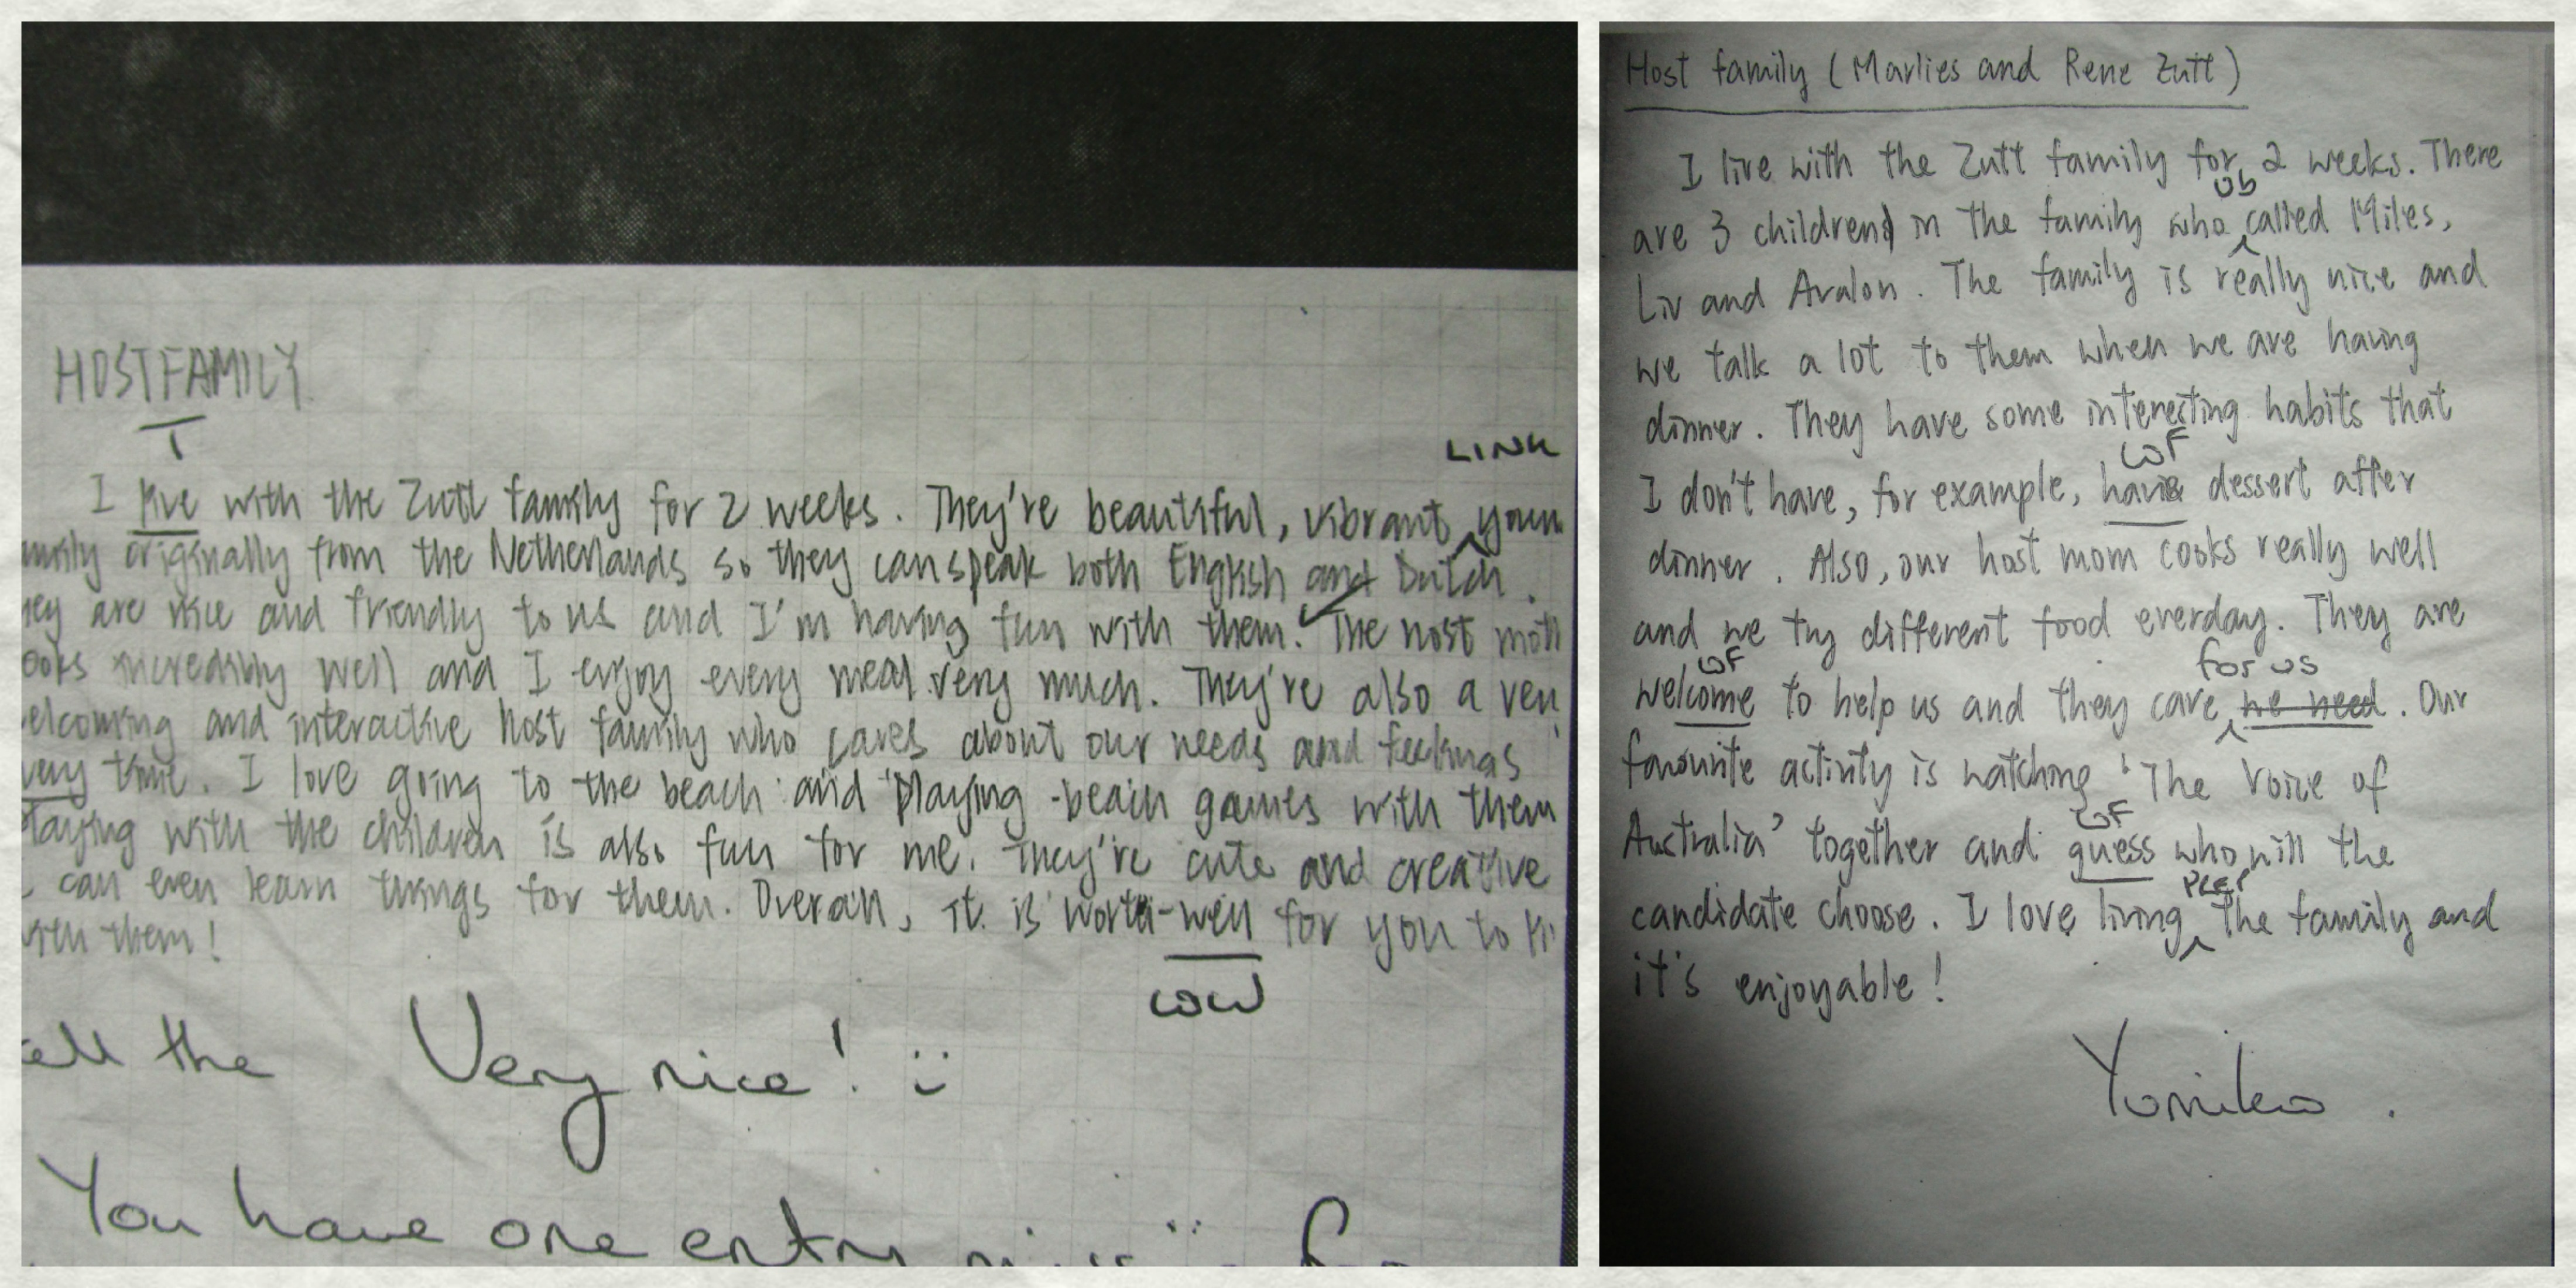 HOSTFAMILY
T
LINK
I live with the Zutt family for 2 weeks. They're beautiful, vibrant
originally from the Netherlands so they can speak both English and Dutch.
are nice and friendly to us and I'm having fun with them. The host
incredibly well and I enjoy every meal very much. They're also a
and interactive host family who cares about our needs and feelings
time. I love going to the beach and playing beach games with them
with the children is also fun for me. They're cute and creative
can even learn things for them. Overall, it is worth-well for you to
them!
WW
the Very nice! :)
You have one entry
Host family (Marlies and Rene Zutt)
I live with the Zutt family for 2 weeks. There
vb
are 3 children in the family who called Miles,
Liv and Avalon. The family is really nice and
we talk a lot to them when we are having
dinner. They have some interesting habits that
WF
I don't have, for example, dessert after
dinner. Also, our host mom cooks really well
and we try different food everday. They are
WF for us
welcome to help us and they care we need. Our
favourite activity is watching 'The Voice of
WF
Australia' together and guess who will the
PREP
candidate choose. I love living the family and
it's enjoyable!
Yumiko.